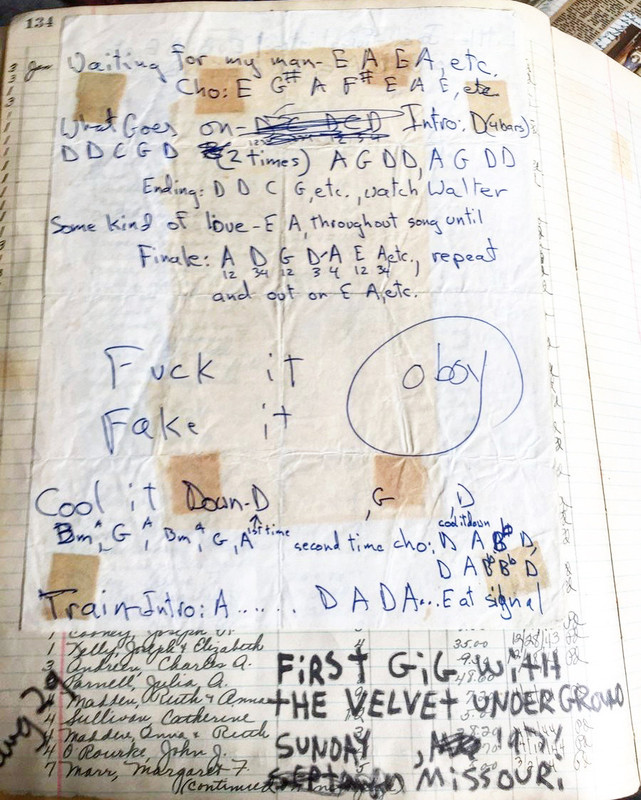 134
3 Jan
Waiting for my man- E A, E A, etc.
Cho: E G# A F# E A E, etc
What Goes on- Intro: D(4 bars)
D D C G D (2 times) A G D D, A G D D
Ending: D D C G, etc., watch Walter
Some kind of love - E A, throughout song until
Finale: A D G D-A E A, etc., repeat
12 34 12 3 4 12 34
and out on E A, etc.
Fuck it
Fake it
o boy
Cool it Down-D , G , D
1st time
cool it down
Bm, A G, A Bm, A G, A second time cho: D A Bb D,
D A Bb D
Train-Intro: A...... D A D A... E at signal
1 Kelly, Joseph & Elizabeth 35.00 12/28/43
3 Andrew, Charles A.
Parnell, Julia A.
4 Madden, Ruth & Anna
4 Sullivan Catherine
4 Madden, Anna & Ruth
4 O'Rourke, John J.
7 Marr, Margaret F.
(continued
Aug 29
FIRST GIG WITH
THE VELVET UNDERGROUND
SUNDAY , '71
MISSOURI